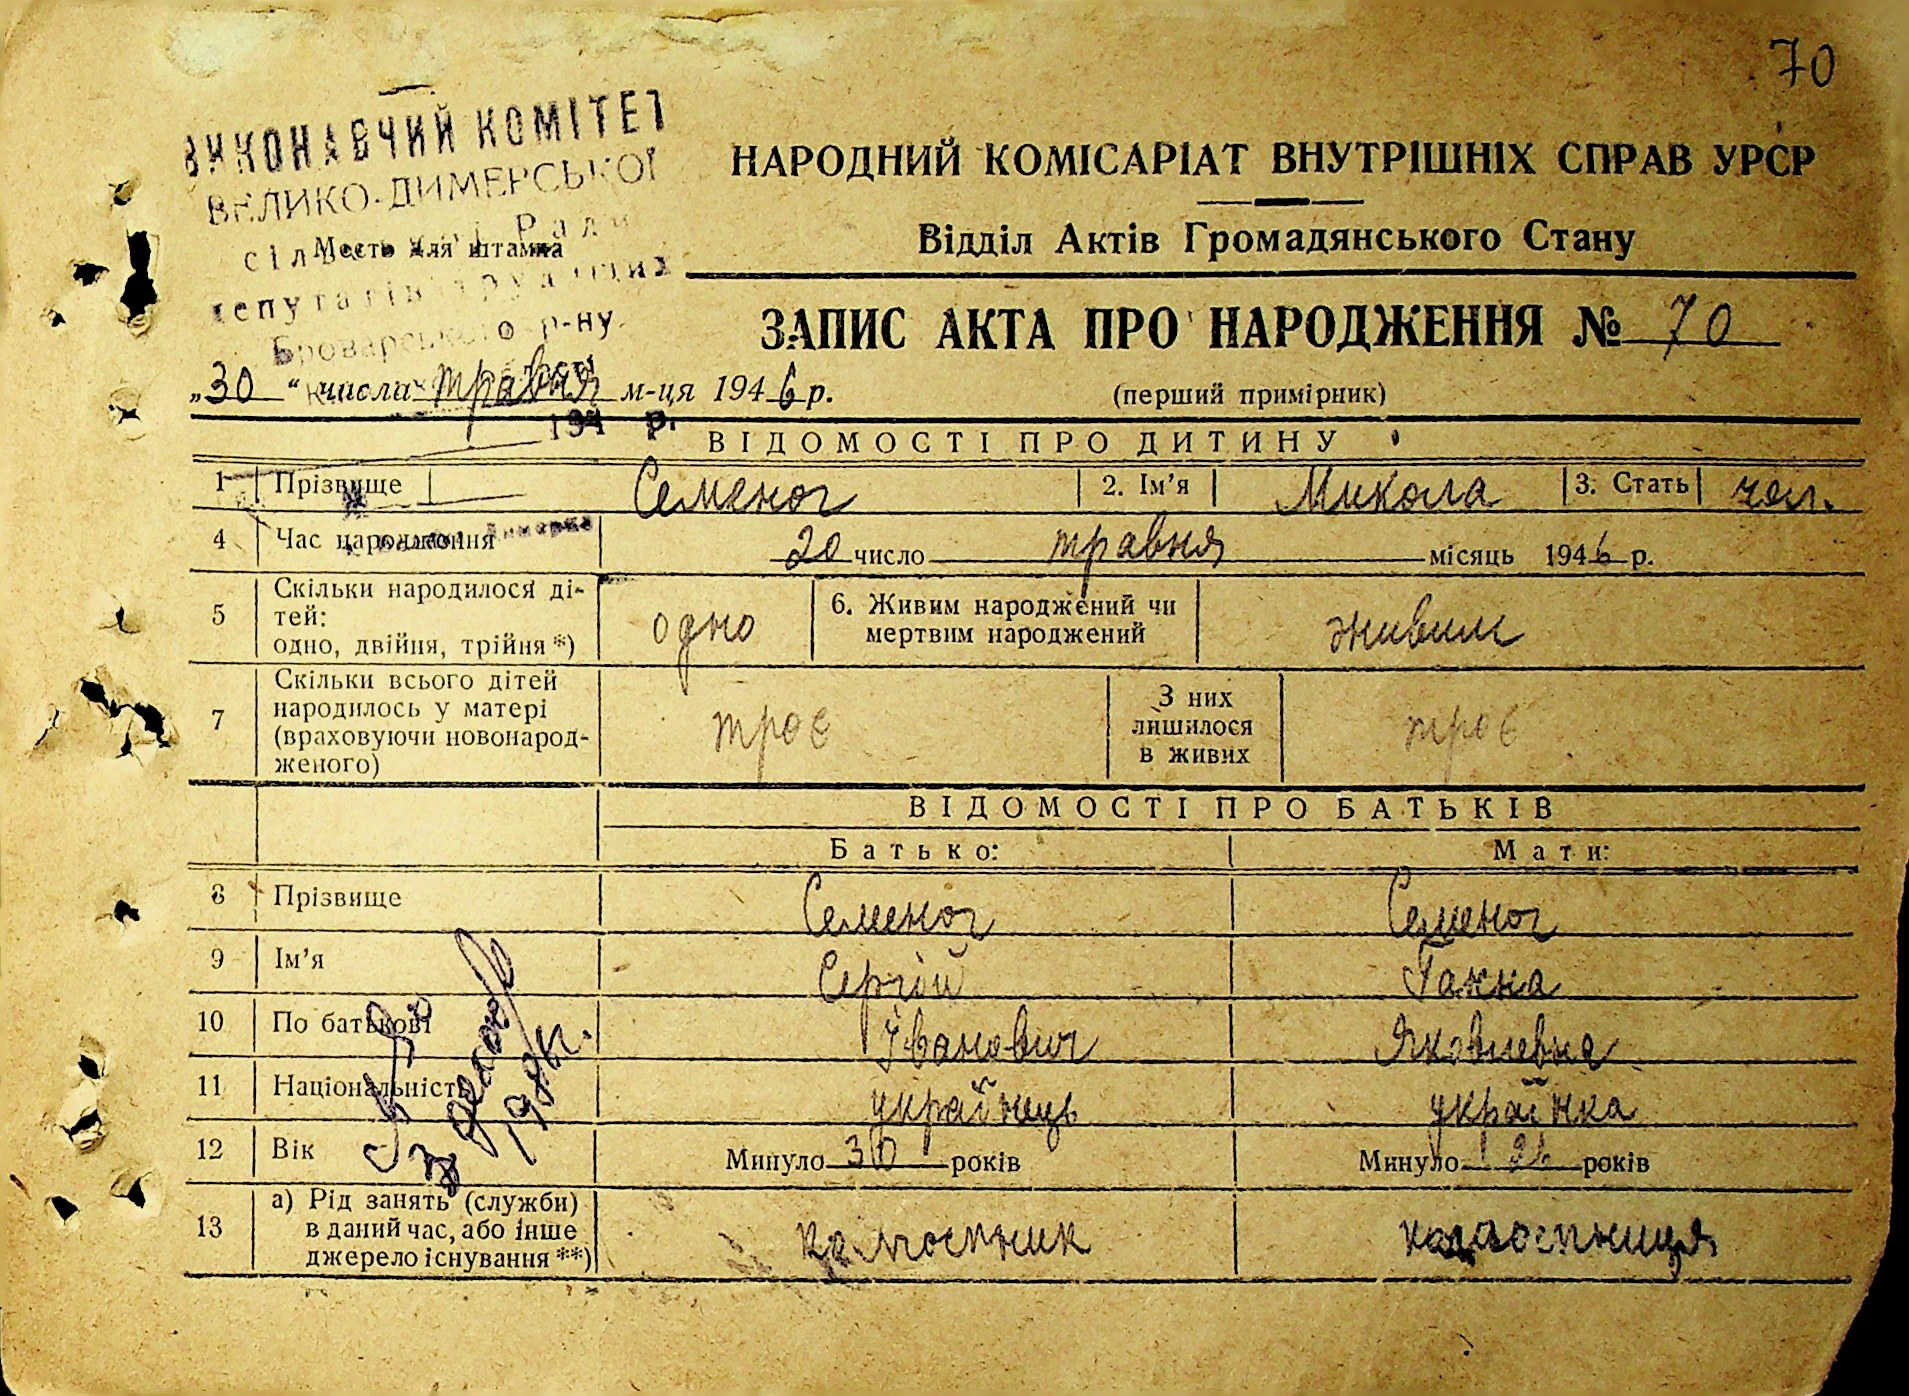 70
ВИКОНАВЧИЙ КОМІТЕТ
ВЕЛИКО-ДИМЕРСЬКОЇ
сільської Ради
депутатів трудящих
Броварського р-ну
194 р.
Место для штампа
НАРОДНИЙ КОМІСАРІАТ ВНУТРІШНІХ СПРАВ УРСР
Відділ Актів Громадянського Стану
ЗАПИС АКТА ПРО НАРОДЖЕННЯ № 70
„30“ числа травня м-ця 1946 р.
(перший примірник)
ВІДОМОСТІ ПРО ДИТИНУ
1 Прізвище Семеног 2. Ім'я Микола 3. Стать чол.
4 Час народження 20 число травня місяць 1946 р.
5 Скільки народилося ді-
тей:
одно, двійня, трійня *) одно 6. Живим народжений чи
мертвим народжений живим
7 Скільки всього дітей
народилось у матері
(враховуючи новонарод-
женого) троє З них
лишилося
в живих троє
ВІДОМОСТІ ПРО БАТЬКІВ
Батько: Мати:
8 Прізвище Семеног Семеног
9 Ім'я Сергій Ганна
10 По батькові Іванович Яковлевна
11 Національність українець українка
12 Вік Минуло 30 років Минуло років
13 а) Рід занять (служби)
в даний час, або інше
джерело існування **) колгоспник колгоспниця